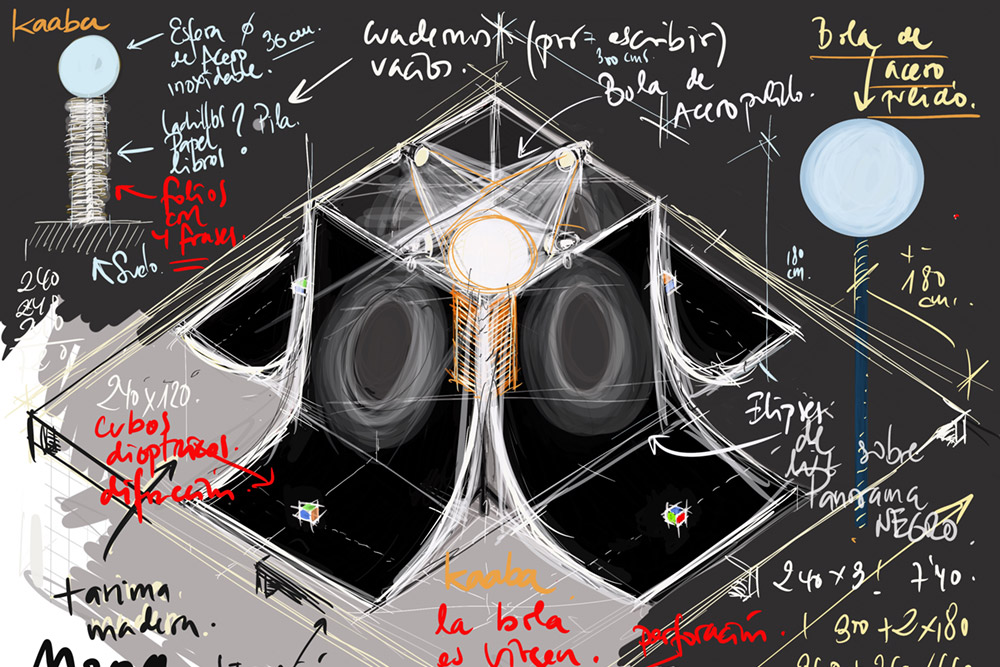 kaaba
Esfera ø
de Acero 30 cm.
inoxidable.
Ladrillos? Pila.
Papel
libros.
folios
con
4 frases.
Suelo.
cuadernos (por = escribir)
vacíos.
300 cms.
Bola de
Acero pulido.
Bola de
acero
pulido.
180
cm.
+
180
cm.
240
240
240 x 120.
cubos
difracción.
Elipses
de
luz sobre
Panorama
NEGRO.
tarima
madera.
kaaba
la bola
es virgen.
perforación.
240 x 3! 7'40.
300 + 2 x 180